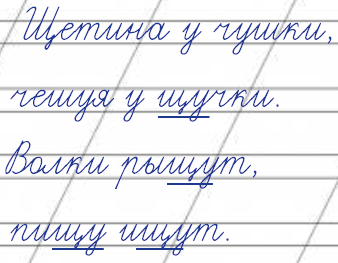 Щетина у чушки,
чешуя у щучки.
Волки рыщут,
пищу ищут.